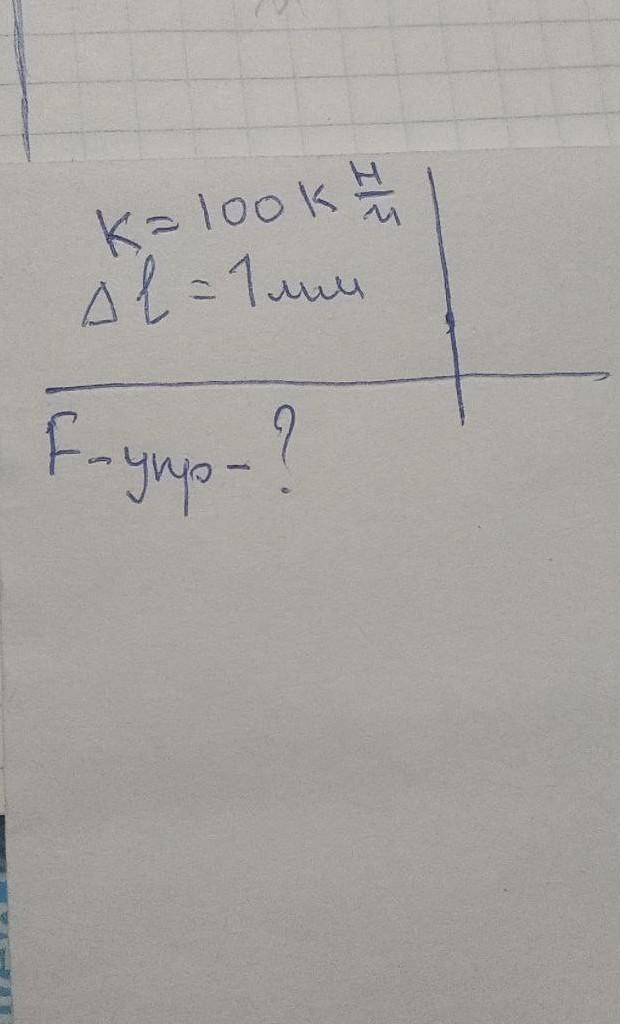 K = 100 к Н/м
Δl = 1 мм
F-упр-?